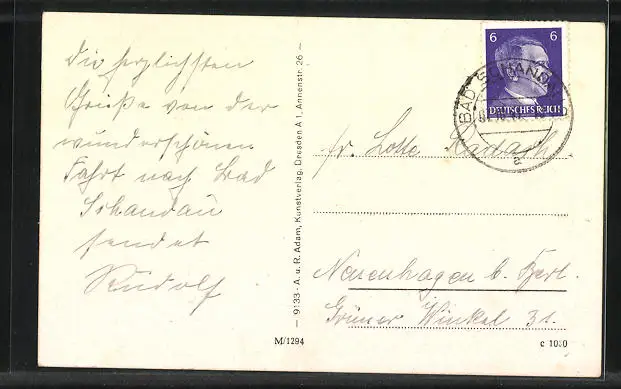 die herzlichsten
Grüße von der
wunderschönen
Fahrt nach Bad
Schandau
sendet
Rudolf
— 9133 - A. u. R. Adam, Kunstverlag, Dresden A 1, Annenstr. 26 —
M/1294
6 6
DEUTSCHES REICH
BAD SCHANDAU
a
fr. Lotte
Neuenhagen b. Berl.
Grüner Winkel 31.
c 1030